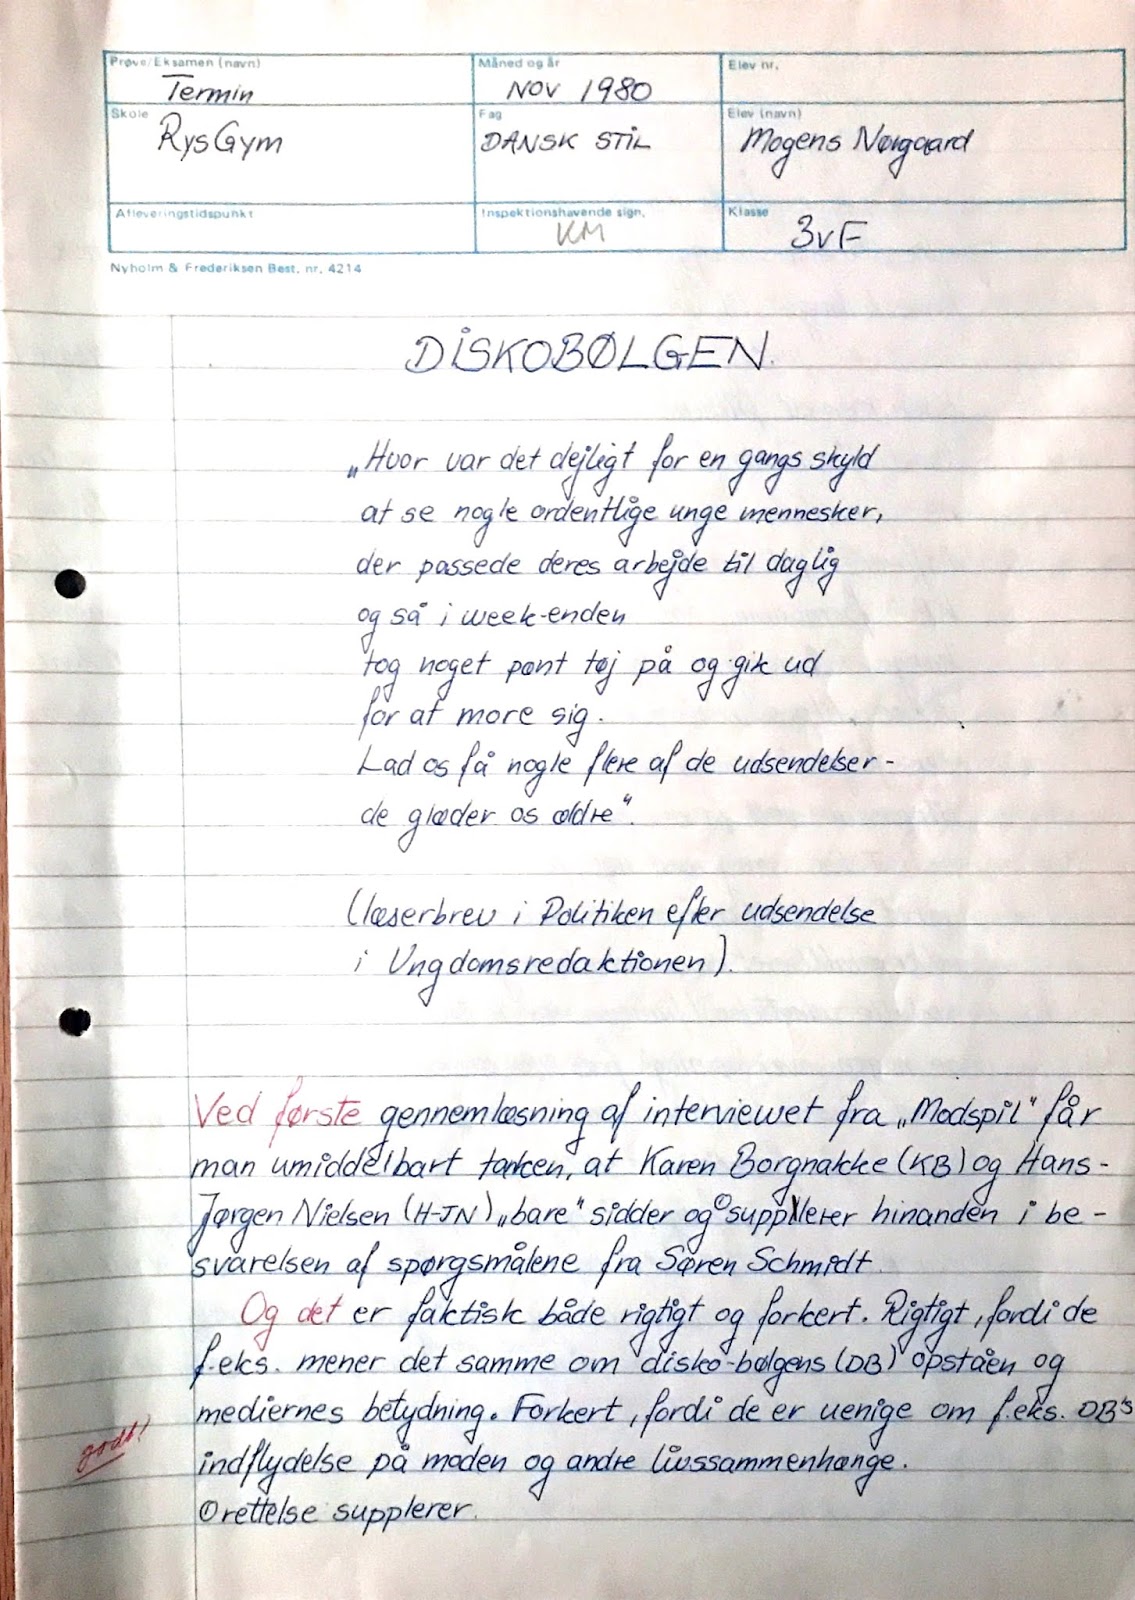 Prøve/Eksamen (navn)
Termin
Måned og år
NOV 1980
Elev nr.
Skole
RysGym
Fag
DANSK STIL
Elev (navn)
Mogens Nørgaard
Afleveringstidspunkt
Inspektionshavende sign.
KM
Klasse
3vF
Nyholm & Frederiksen Best. nr. 4214
DISKOBØLGEN.
„Hvor var det dejligt for en gangs skyld
at se nogle ordentlige unge mennesker,
der passede deres arbejde til daglig
og så i week-enden
tog noget pænt tøj på og gik ud
for at more sig.
Lad os få nogle flere af de udsendelser -
de glæder os ældre".
(læserbrev i Politiken efter udsendelse
i Ungdomsredaktionen).
Ved første gennemlæsning af interviewet fra „Modspil" får
man umiddelbart tanken, at Karen Borgnakke (KB) og Hans-
Jørgen Nielsen (H-JN) „bare" sidder og ① supplerer hinanden i be-
svarelsen af spørgsmålene fra Søren Schmidt.
Og det er faktisk både rigtigt og forkert. Rigtigt, fordi de
f.eks. mener det samme om disko-bølgens (DB) opståen og
mediernes betydning. Forkert, fordi de er uenige om f.eks. DB's
godt!
indflydelse på moden og andre livssammenhænge.
① rettelse: supplerer.